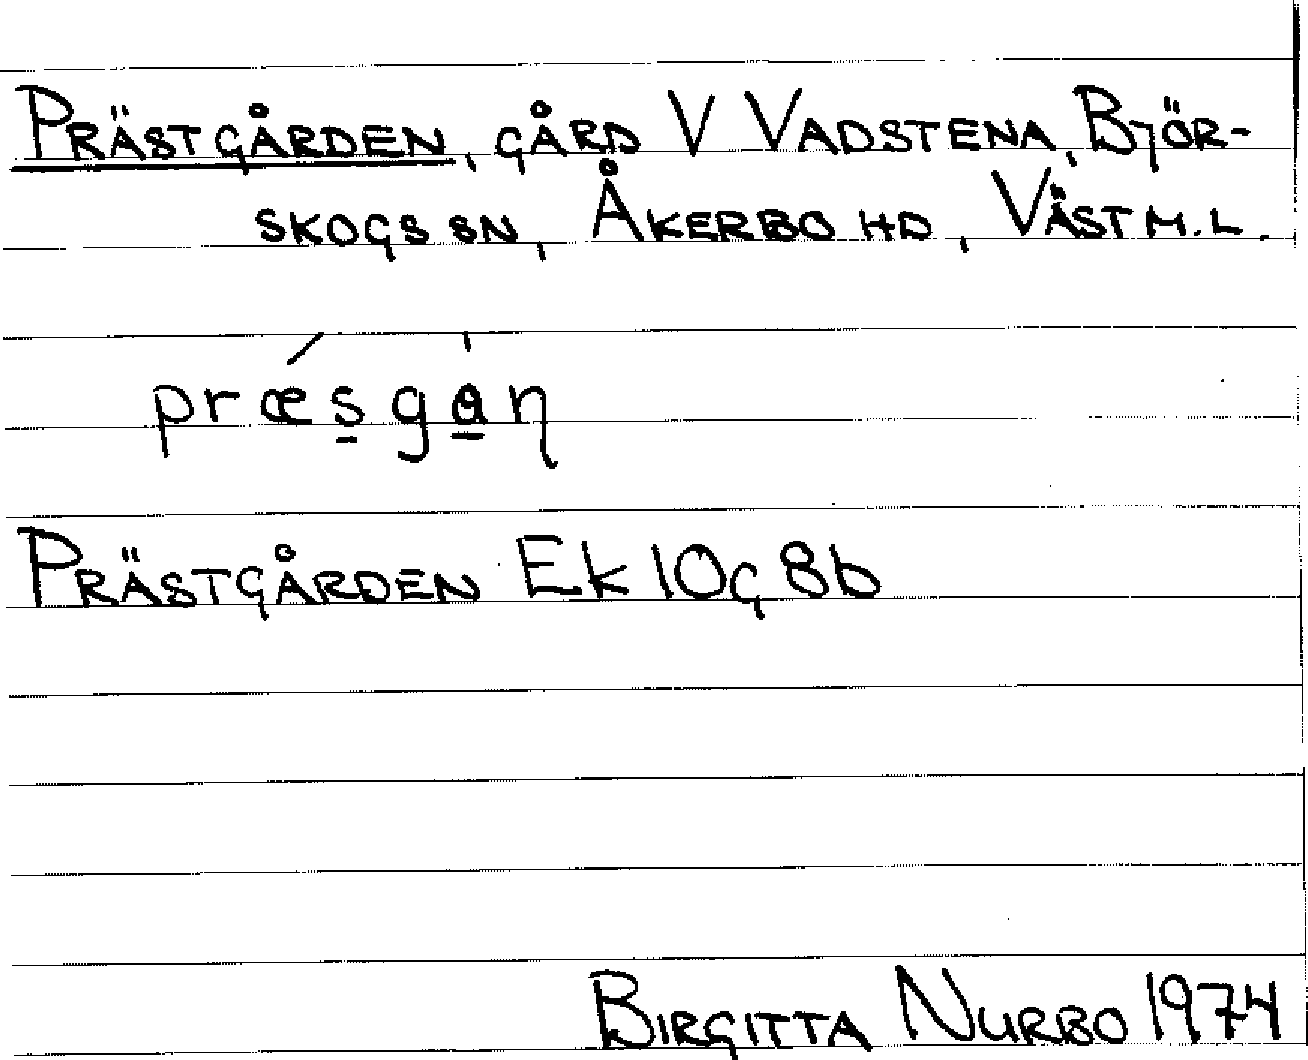 PRÄSTGÅRDEN, GÅRD V VADSTENA, BJÖR-
SKOGS SN, ÅKERBO HD, VÄSTM.L.
præ̀s̲gɑ̲̍ɳ
PRÄSTGÅRDEN Ek 10G 8b
BIRGITTA NURBO 1974